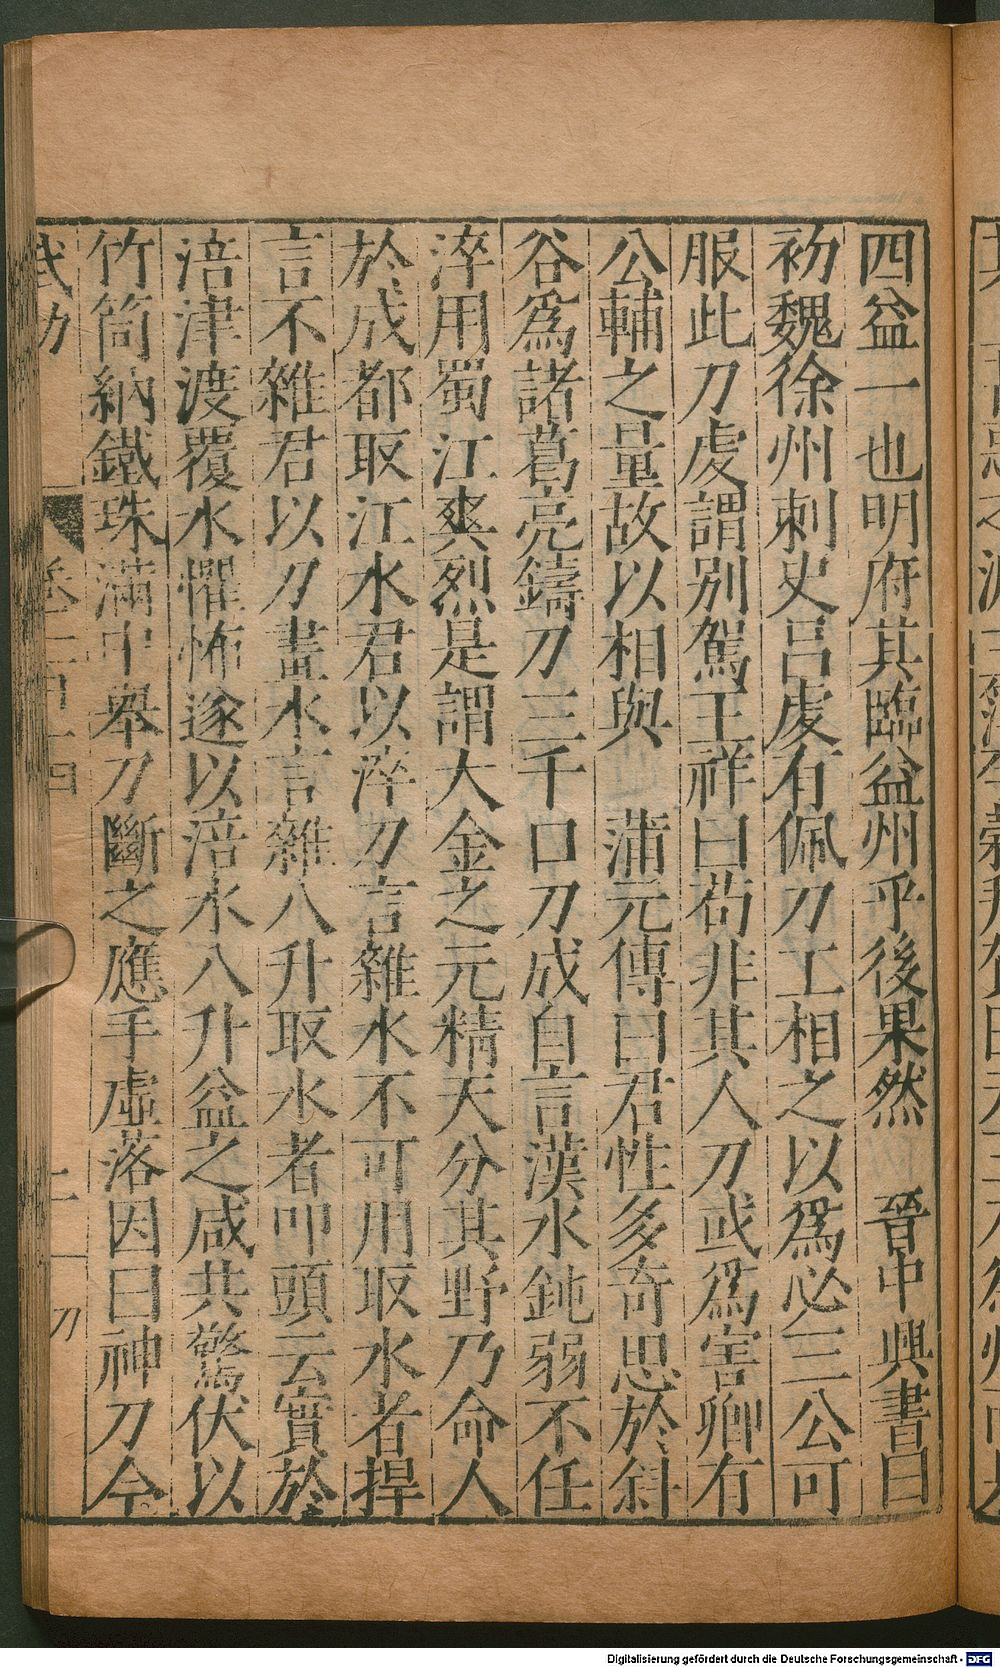 四益一也明府其臨益州乎後果然　晉中興書曰
初魏徐州刺史呂虔有佩刀工相之以爲必三公可
服此刀虔謂別駕王祥曰苟非其人刀或爲害卿有
公輔之量故以相與　蒲元傳曰君性多奇思於斜
谷爲諸葛亮鑄刀三千口刀成自言漢水鈍弱不任
淬用蜀江爽烈是謂大金之元精天分其野乃命人
於成都取江水君以淬刀言雜水不可用取水者捍
言不雜君以刀畫水言雜八升取水者叩頭云實於
涪津渡覆水懼怖遂以涪水八升益之咸共驚伏以
竹筒納鐵珠滿中舉刀斷之應手虛落因曰神刀今
武功
刀
Digitalisierung gefördert durch die Deutsche Forschungsgemeinschaft - DFG